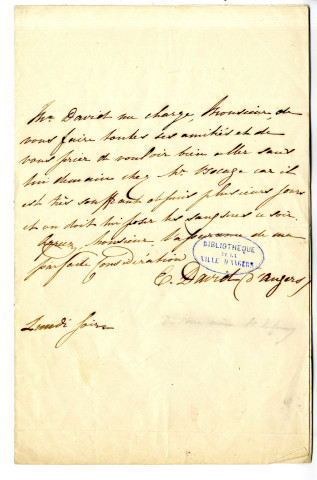 Mr David me charge, Monsieur, de
vous faire toutes ses amitiés et de
vous prier de vouloir bien aller sans
lui demain chez Mr Bocage car il
est très souffrant depuis plusieurs jours
et on doit lui poser les sangsues ce soir.
Agréez, Monsieur, l'assurance de ma
parfaite considération
E. David (d'Angers)
BIBLIOTHÈQUE
DE LA
VILLE D'ANGERS
Lundi soir